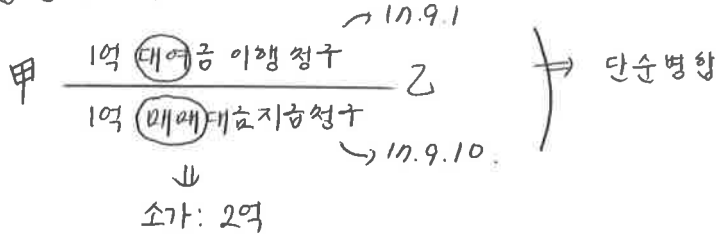 → 17.9.1
甲 1억 대여금 이행청구 乙 ⇒ 단순병합
1억 매매대금지급청구
→ 17.9.10.
⇓
소가: 2억